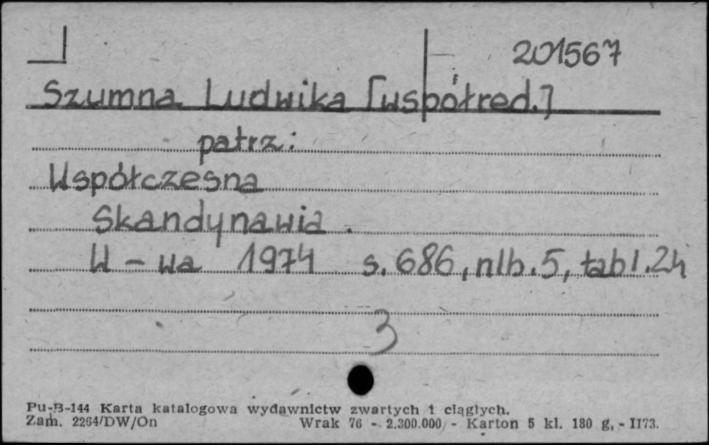 201567
Szumna Ludwika [współred.]
patrz:
Współczesna
Skandynawia.
W-wa 1974 s. 686, nlb. 5, tabl. 24
3
Pu-B-144 Karta katalogowa wydawnictw zwartych i ciągłych.
Zam. 2264/DW/On Wrak 76 - 2.300.000 - Karton 5 kl. 180 g. - II73.